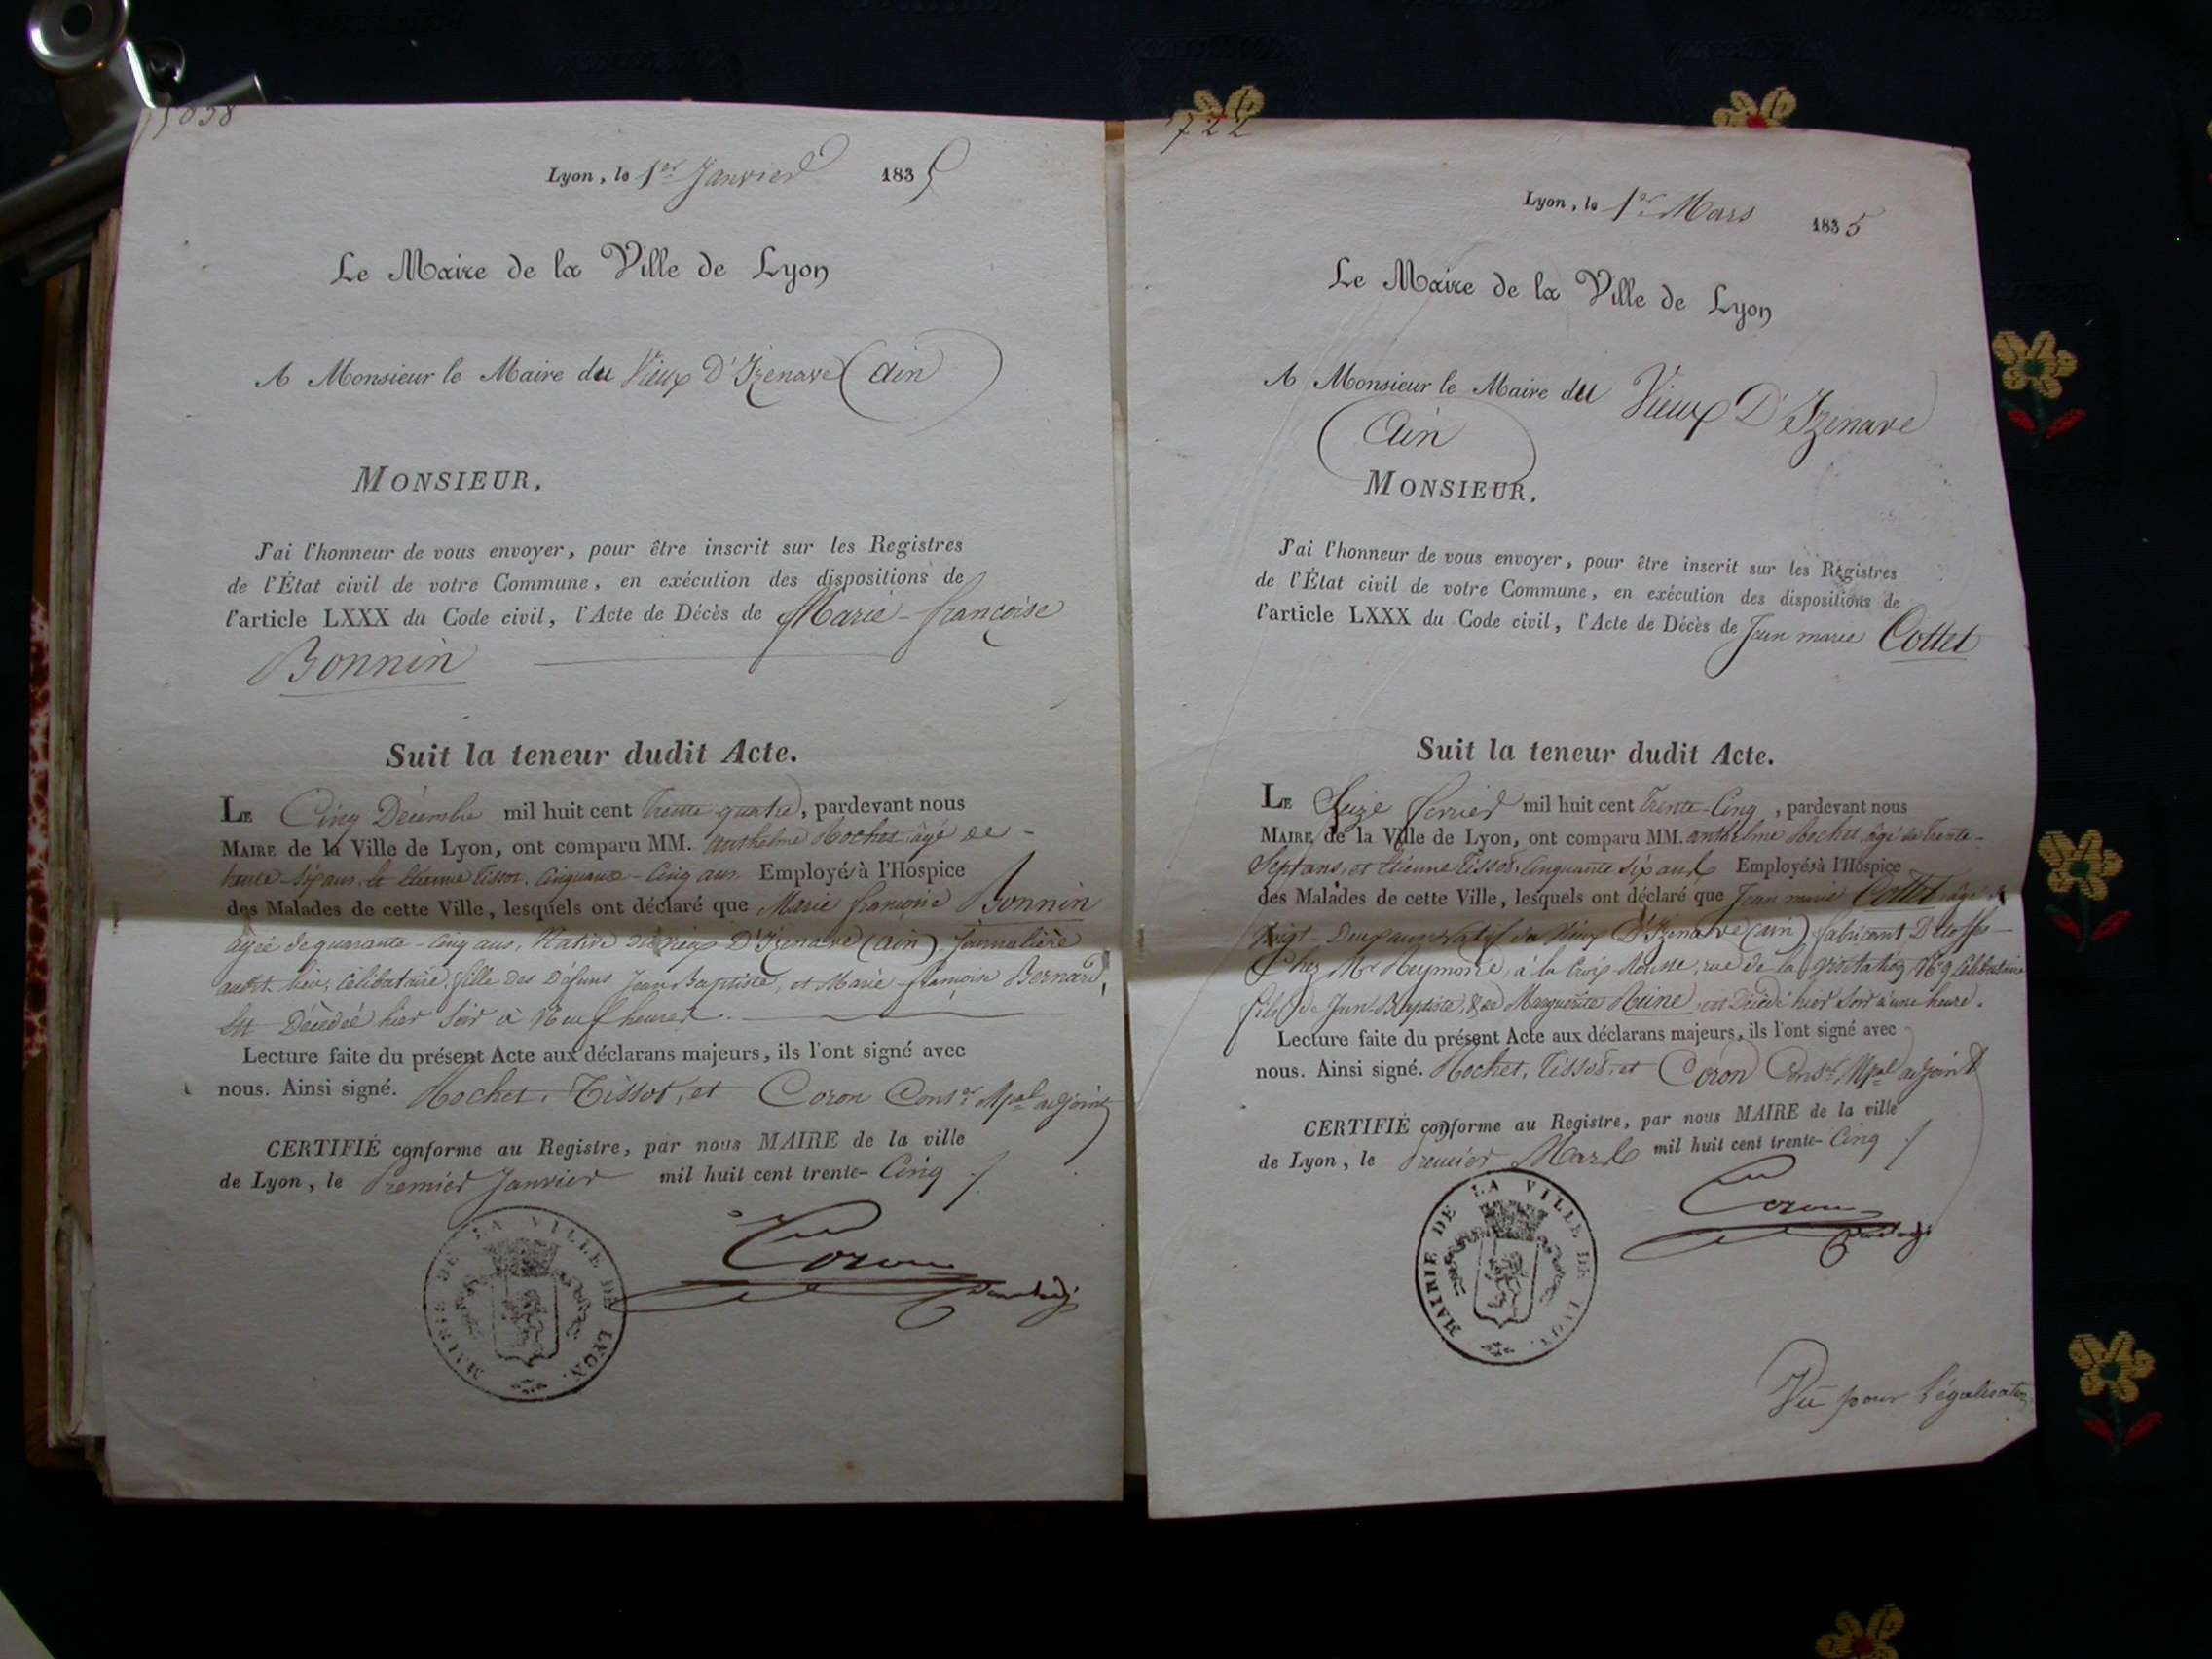 5838
Lyon, le 1er Janvier 1835
Le Maire de la Ville de Lyon
A Monsieur le Maire du Vieux D'Izenave (ain)
MONSIEUR,
J'ai l'honneur de vous envoyer, pour être inscrit sur les Registres
de l'État civil de votre Commune, en exécution des dispositions de
l'article LXXX du Code civil, l'Acte de Décès de Marie-françoise
Bonnin
Suit la teneur dudit Acte.
LE Cinq Décembre mil huit cent trente quatre, pardevant nous
MAIRE de la Ville de Lyon, ont comparu MM. anthelme Rochet âgé de -
trente-six ans, et Etienne Tissot, Cinquante-Cinq ans Employés à l'Hospice
des Malades de cette Ville, lesquels ont déclaré que Marie françoise Bonnin
âgée de quarante-cinq ans, Native du vieux D'Izenave (ain) journalière
audit lieu, Célibataire, fille des Défunts Jean Baptiste, et Marie-françoise Bernard,
Est Décédée hier Soir à Neuf heures.
Lecture faite du présent Acte aux déclarans majeurs, ils l'ont signé avec
nous. Ainsi signé. Rochet, Tissot, et Coron Conser Mpal adjoint
CERTIFIÉ conforme au Registre, par nous MAIRE de la ville
de Lyon, le Premier Janvier mil huit cent trente-Cinq ./.
Coron
MAIRIE DE LA VILLE DE LYON.
722
Lyon, le 1er Mars 1835
Le Maire de la Ville de Lyon
A Monsieur le Maire du Vieux D'Izenave
(Ain)
MONSIEUR,
J'ai l'honneur de vous envoyer, pour être inscrit sur les Registres
de l'État civil de votre Commune, en exécution des dispositions de
l'article LXXX du Code civil, l'Acte de Décès de Jean marie Cottet
Suit la teneur dudit Acte.
LE Seize fevrier mil huit cent Trente-Cinq, pardevant nous
MAIRE de la Ville de Lyon, ont comparu MM. anthelme Rochet, âgé de Trente-
Sept ans, et Etienne Tissot, Cinquante Six ans Employés à l'Hospice
des Malades de cette Ville, lesquels ont déclaré que Jean marie Cottet, âgé de
Vingt-Deux ans Natif du Vieux D'Izenave (ain) fabricant D'étoffes
Chez Mr Reymond, à la Croix Rousse, rue de la Visitation No 9 Célibataire
fils de Jean-Baptiste, & de Marguerite Reine, est Décédé hier Soir à une heure.
Lecture faite du présent Acte aux déclarans majeurs, ils l'ont signé avec
nous. Ainsi signé. Rochet, Tissot, et Coron Conser Mpal adjoint
CERTIFIÉ conforme au Registre, par nous MAIRE de la ville
de Lyon, le Premier Mars mil huit cent trente-Cinq ./.
Coron
MAIRIE DE LA VILLE DE LYON.
Vu pour légalisation